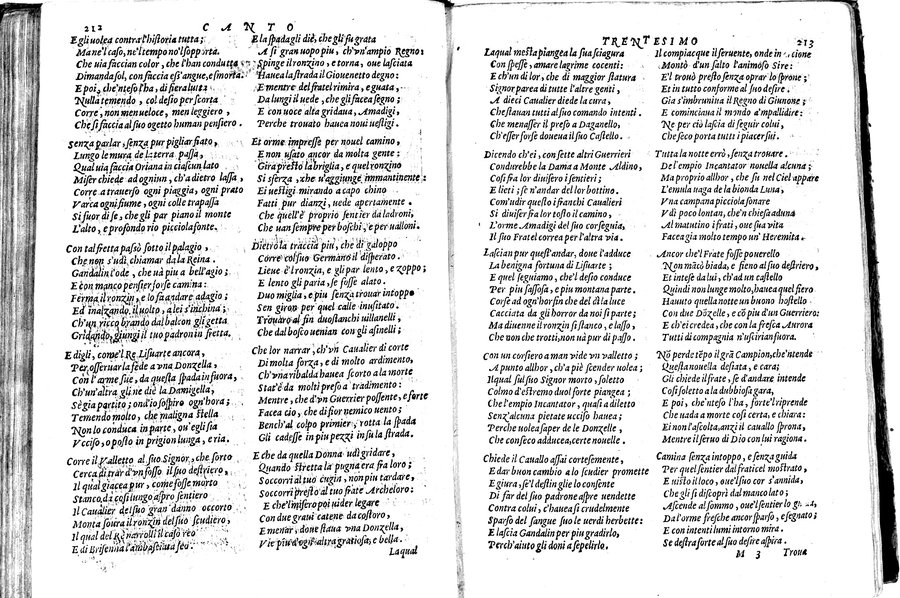 212
CANTO
E gli volea contra l'historia tutta;
Ma nel caso, nè'l tempo no'l sopporta.
Che uia faccian color, che l'han condutta
Dimanda sol, con faccia esangue, e smorta
E poi, che'nteso l'ha, di fiera lutta
Nulla temendo, col desio per scorta
Corre, non men ueloce, men leggiero,
Che si faccia al suo ogetto human pensiero.
Senza parlar, senza pur pigliar fiato,
Lungo le mura de la terra passa,
Qual uia faccia Oriana in ciascun lato
Miser chiede ad ogniun, ch'a dietro lassa,
Corre a trauerso ogni piaggia, ogni prato
Varca ogni fiume, ogni colle trapassa
Si fuor di se, che gli par piano il monte
L'alto, e profondo rio picciola fonte.
Con tal fretta passò sotto il palagio,
Che non s'udì chiamar da la Reina.
Gandalin l'ode, che uà piu a bell'agio;
E con manco pensier forse camina:
Ferma il ronzin, e lo fa andare adagio;
Ed inalzando il uolto, a lei s'inchina;
Ch'un ricco brando dal balcon gli getta
Gridando, giungi il tuo padron in fretta.
E digli, come'l Re Lisuarte ancora,
Per osseruar la fede a vna Donzella,
Con l'arme sue, da questa spada in fuora,
Ch'un'altra gli ne diè la Damigella,
Se gia partito; ond'io sospiro ogn'hora;
Temendo molto, che maligna stella
Non lo conduca in parte, ou'egli sia
Vcciso, o posto in prigion lunga, e ria.
Corre il Valletto al suo Signor, che sorto
Cerca di trar d'vn fosso il suo destriero,
Il qual giacea pur, come fosse morto
Stanco, di cosi lungo aspro sentiero
Il Caualier del suo gran danno occorto
Monta soura il ronzin del suo scudiero,
Il qual del Re narrolli il caso reo
E di Brisenna l'ambasciata feo.
E la spada gli diè, che gli fu grata
A si gran uopo piu, ch'vn'ampio Regno:
Spinge il ronzino, e torna, oue lasciata
Hauea la strada il Giouenetto degno:
E mentre del fratel rimira, e guata,
Da lungi il uede, che gli facea segno;
E con uoce alta gridaua, Amadigi,
Perche trouato hauea noui uestigi.
Et orme impresse per nouel camino,
E non usato ancor da molta gente:
Gira presto la briglia, e quel ronzino
Si sferza, che n'aggiunge immantinente:
Ei uestigi mirando a capo chino
Fatti pur dianzi, uede apertamente.
Che quell'è proprio sentier da ladroni,
Che uan sempre per boschi, e per ualloni.
Dietro la traccia piu, che di galoppo
Corre colsuo Germano il disperato.
Lieue è'l ronzin, e gli par lento, e zoppo;
E lento gli paria, se fosse alato.
Duo miglia, e piu senza trouar intoppo
Sen giron per quel calle inusitato.
Trouaro al fin duo stanchi uillanelli,
Che dal bosco uenian con gli asinelli;
Che lor narrar, ch'vn Caualier di corte
Di molta forza, e di molto ardimento,
Ch'vna ribalda hauea scorto a la morte
Stat'è da molti preso a tradimento:
Mentre, che d'vn Guerrier possente, e forte
Facea cio, che di fier nemico uento;
Bench'al colpo primier, rotta la spada
Gli cadesse in piu pezzi in su la strada.
E che da quella Donna udì gridare,
Quando stretta la pugna era fra loro;
Soccorri al tuo cugin, non piu tardare,
Soccorri presto al tuo frate Archeloro:
E che l'misero poi uider legare
Con due grani catene da costoro,
E menar, doue staua vna Donzella,
Vie piu d'ogni altra gratiosa, e bella.
Laqual
TRENTESIMO
213
Laqual mesta piangea la sua sciagura
Con spesse, amare lagrime cocenti:
E ch'un di lor, che di maggior statura
Signor parea di tutte l'altre genti,
A dieci Caualier diede la cura,
Che stauan tutti al suo comando intenti.
Che menasser il preso a Daganello,
Ch'esser forse doueua il suo Castello.
Dicendo ch'ei, con sette altri Guerrieri
Condurebbe la Dama a Monte Aldino,
Cosi fra lor diuisero i sentieri;
E lieti; se n'andar del lor bottino.
Com'udir questo i franchi Caualieri
Si diuiser fra lor tosto il camino,
L'orme Amadigi del suo cor seguia,
Il suo Fratel correa per l'altra via.
Lascian pur quest'andar, doue l'adduce
La benigna fortuna di Lisuarte;
E quel seguiamo, che'l desio conduce
Per piu sassosa, e piu montana parte.
Corse ad ogn'hor fin che del ciel la luce
Cacciata da gli horror da noi si parte;
Ma diuenne il ronzin si stanco, e lasso,
Che non che trotti, non uà pur di passo.
Con un corsiero a man vide vn valletto;
A punto allhor, ch'a piè scender uolea;
Il qual sul suo Signor morto, soletto
Colmo d'estremo duol forte piangea;
Che l'empio Incantator, quasi a diletto
Senz'alcuna pietate ucciso hauea;
Perche uolea saper de le Donzelle,
Che con seco adducea, certe nouelle.
Chiede il Caualier assai cortesemente,
E dar buon cambio a lo scudier promette
E giura, se'l destin glie lo consente
Di far del suo padrone aspre uendette
Contra colui, c'hauea si crudelmente
Sparso del sangue suo le uerdi herbette:
E lascia Gandalin per piu gradirlo,
Perch'aiuto gli doni a sepelirlo.
Il compiacque il seruente, onde in cione
Montò d'un salto l'animoso Sire:
E'l trouò presto senza oprar lo sprone;
Et in tutto conforme al suo desire.
Gia s'imbruniua il Regno di Giunone;
E cominciaua il mondo a'mpallidire:
Ne per ciò lascia di seguir colui,
Che seco porta tutti i piacer sui.
Tutta la notte errò, senza trouare.
De l'empio Incantator nouella alcuna;
Ma proprio allhor, che fu nel Ciel appare
L'emula uaga de la bionda Luna,
Vna campana picciola sonare
Vdì poco lontan, che'n chiesa aduna
Al matutino i frati, oue sua vita
Facea gia molto tempo un'Heremita.
Ancor che'l Frate fosse pouerello
Non mācò biada, e fieno al suo destriero,
Et intese da lui, ch'ad un castello
Quindi non lunge molto, hauea quel fiero
Hauuto quella notte un buono hostello
Con due Dōzelle, e cō piu d'un Guerriero:
E ch'ei credea, che con la fresca Aurora
Tutti di compagnia n'uscirian fuora.
Nō perde tēpo il grā Campion, che'ntende
Questa nouella desiata, e cara;
Gli chiede il frate, se d'andare intende
Cosi soletto a la dubbiosa gara,
E poi, che'nteso l'ha, forte'l riprende
Che uada a morte cosi certa, e chiara:
Ei non l'ascolta, anzi il cauallo sprona,
Mentre il seruo di Dio con lui ragiona.
Camina senza intoppo, e senza guida
Per quel sentier dal fratìcel mostrato,
E uisto il loco, oue'l suo cor s'annida,
Che gli si discoprì dal manco lato;
Ascende al sommo, oue'l sentier lo guida,
Da l'orme fresche ancor sparso, e segnato;
E con intenti lumi intorno mira.
Se destra forte al suo desire aspira.
M 3 Troua